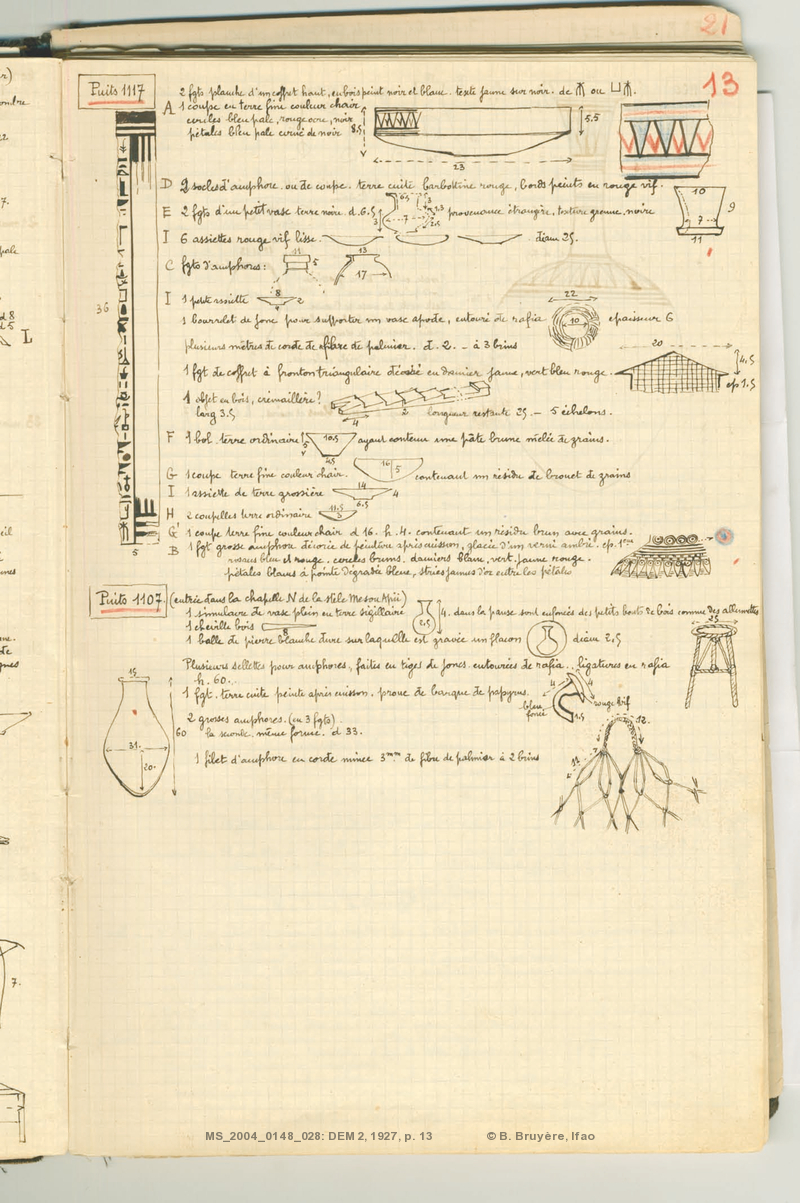 21
13
Puits 1117
2 fgts planche d'un coffret haut, en bois peint noir et blanc. texte jaune sur noir. de ou
A 1 coupe en terre fine couleur chair
cercles bleu pale, rouge ocre, noir
pétales bleu pale cerné de noir
8.5
5.5
23
D 2 socles d'amphore ou de coupe. terre cuite barbottine rouge, bords peints en rouge vif.
E 2 fgts d'un petit vase terre noire. d. 6.5 provenance étrangère, texture grenue, noire
10
9
7
11
I 6 assiettes rouge vif lisse. diam 25.
C fgts d'amphores: 11 5 13 17
36
I 1 petite assiette 8 2
22
1 bourrelet de jonc pour supporter un vase apode, entouré de rafia 10 epaisseur 6
plusieurs mètres de corde de fibre de palmier. d. 2. - à 3 brins
20
1 fgt de coffret à fronton triangulaire décoré en damier jaune, vert bleu rouge. 4.5
ep 1.5
1 objet en bois, crémaillère?
larg 3.5 4 2 longueur restante 25. - 5 échelons.
F 1 bol terre ordinaire 5 10.5 4.5 ayant contenu une pâte brune mêlée de grains.
G 1 coupe terre fine couleur chair. 16 5 contenant un résidu de brouet de grains
I 1 assiette de terre grossière 14 4 6.5
H 2 coupelles terre ordinaire 11.5 3
G' 1 coupe terre fine couleur chair d 16. h. 4. contenant un résidu brun avec grains.
B 1 fgt grosse amphore décorée de peinture après cuisson, glacée d'un vernis ambré. ep. 1
rosaces bleu et rouge. cercles bruns. damiers blanc, vert. jaune rouge.
pétales blancs à pointe dégradée bleue, stries jaunes d'or entre les pétales
5
Puits 1107
(entrée dans la chapelle N de la stèle Mesou Khii)
1 simulaire de vase plein en terre sigillaire 2.5 4. dans la panse sont enfoncés des petits bouts de bois comme des allumettes
1 cheville bois 8
1 balle de pierre blanche dure sur laquelle est gravée un flacon diam 2,5
25
Plusieurs sellettes pour amphores, faites en tiges de joncs entourées de rafia. ligatures en rafia
h. 60.
1 fgt. terre cuite peinte après cuisson. proue de barque de papyrus.
4 4 bleu foncé rouge vif 1.5
15
2 grosses amphores. (en 3 fgts)
60 la seconde, même forme. d 33.
31.
20.
12.
1 filet d'amphore en corde mince 3mm de fibre de palmier à 2 brins
11
MS_2004_0148_028: DEM 2, 1927, p. 13 © B. Bruyère, Ifao